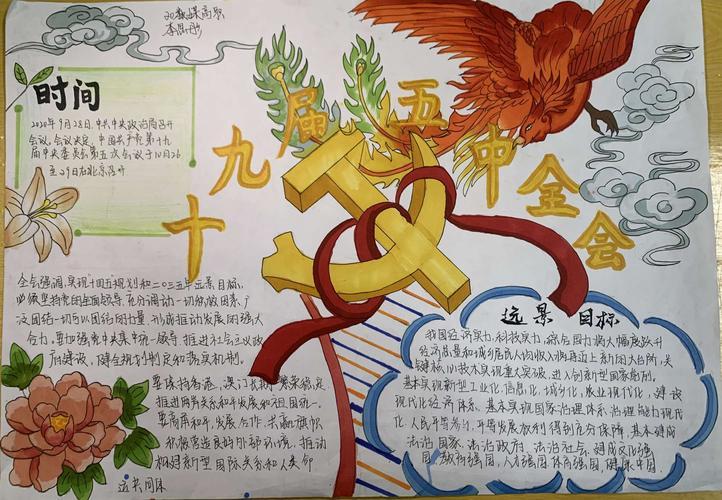 20数媒高职
时间
2020年9月28日,中共中央政治局召开
会议,会议决定,中国共产党第十九
届中央委员会第五次会议于10月26
至29日在北京召开
十九届五中全会
全会强调,实现"十四五"规划和二〇三五年远景目标,
必须坚持党的全面领导,充分调动一切积极因素,广
泛团结一切可以团结的力量,形成推动发展的强大
合力。要加强党中央集中统一领导,推进社会主义政
治建设,健全规划制定和落实机制。
要保持香港、澳门长期繁荣稳定,
推进两岸关系和平发展和祖国统一。
要高举和平、发展、合作、共赢旗帜
积极营造良好外部环境,推动
构建新型国际关系和人类命
运共同体
远景目标
我国经济实力、科技实力、综合国力将大幅度跃升
经济总量和城乡居民人均收入将再迈上新的大台阶,关
键核心技术实现重大突破,进入创新型国家前列。
基本实现新型工业化、信息化、城镇化、农业现代化,建设
现代化经济体系,基本实现国家治理体系治理能力现代
化,人民平等参与、平等发展权利得到充分保障,基本建成
法治国家、法治政府、法治社会,建成文化强
国、教育强国、人才强国、体育强国、健康中国